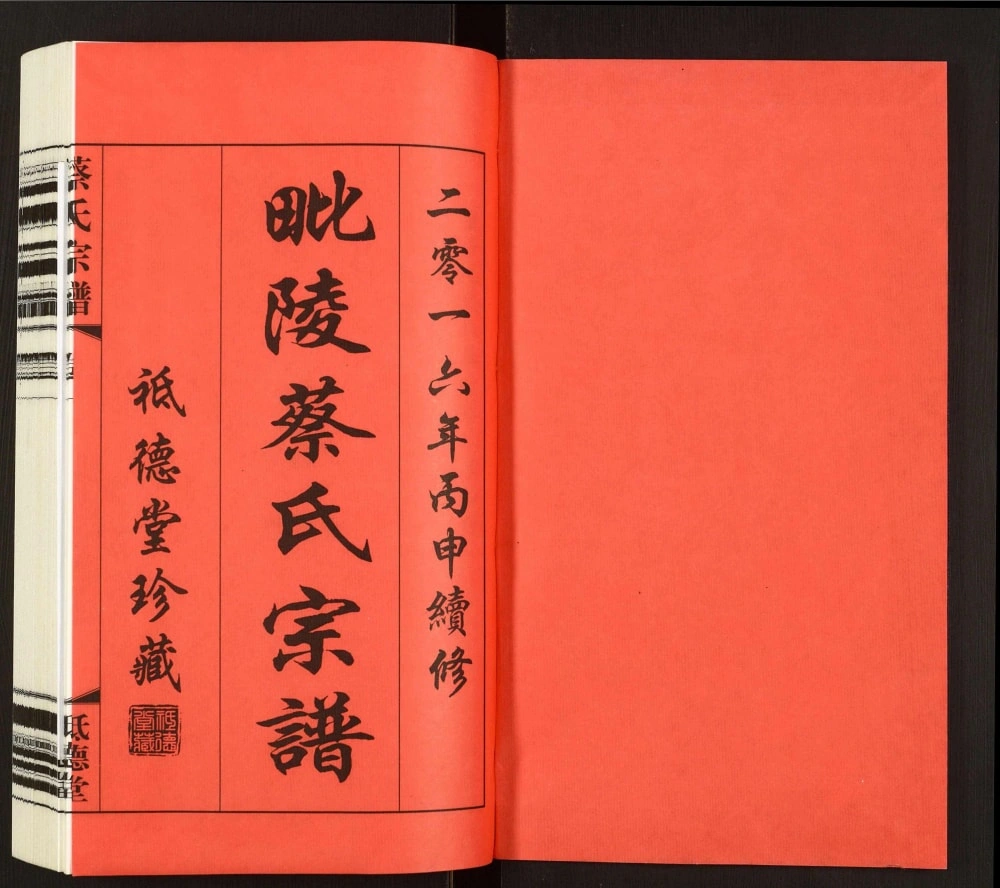 二零一六年丙申續修
毗陵蔡氏宗譜
祗德堂珍藏
祗德堂藏
蔡氏宗譜
祗德堂